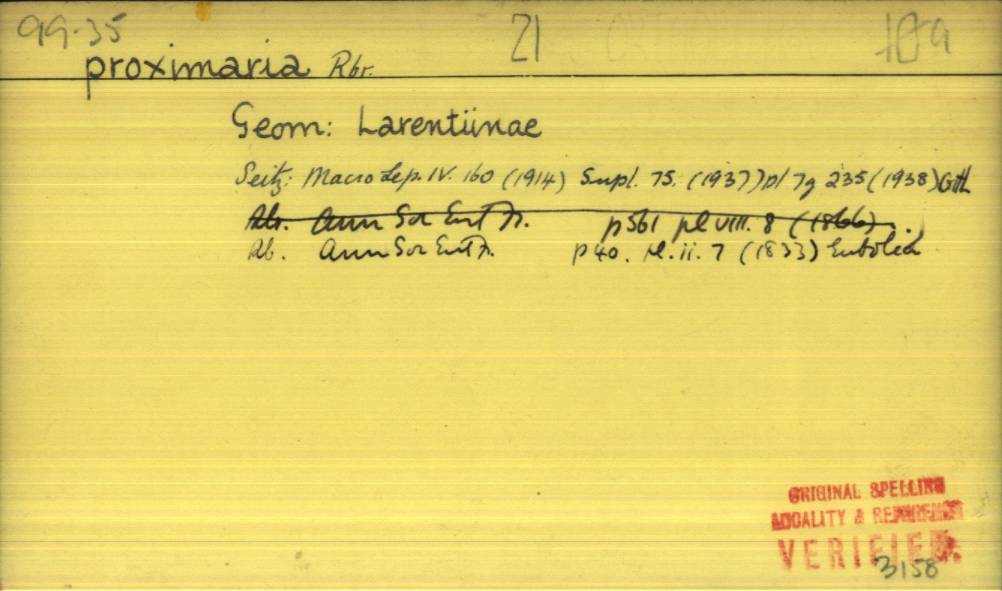 99-35 21 10a
proximaria Rbr.
Geom: Larentiinae
Seitz: Macro Lep. IV. 160 (1914) Supl. 75. (1937) pl 7g 235 (1938)
Ann Soc Ent Fr. p 561 pl viii. 8 (1866).
Ann Soc Ent Fr. p 40. pl. ii. 7 (1833) Eubolea
ORIGINAL SPELLING
LOCALITY & REFERENCE
VERIFIED.
3158